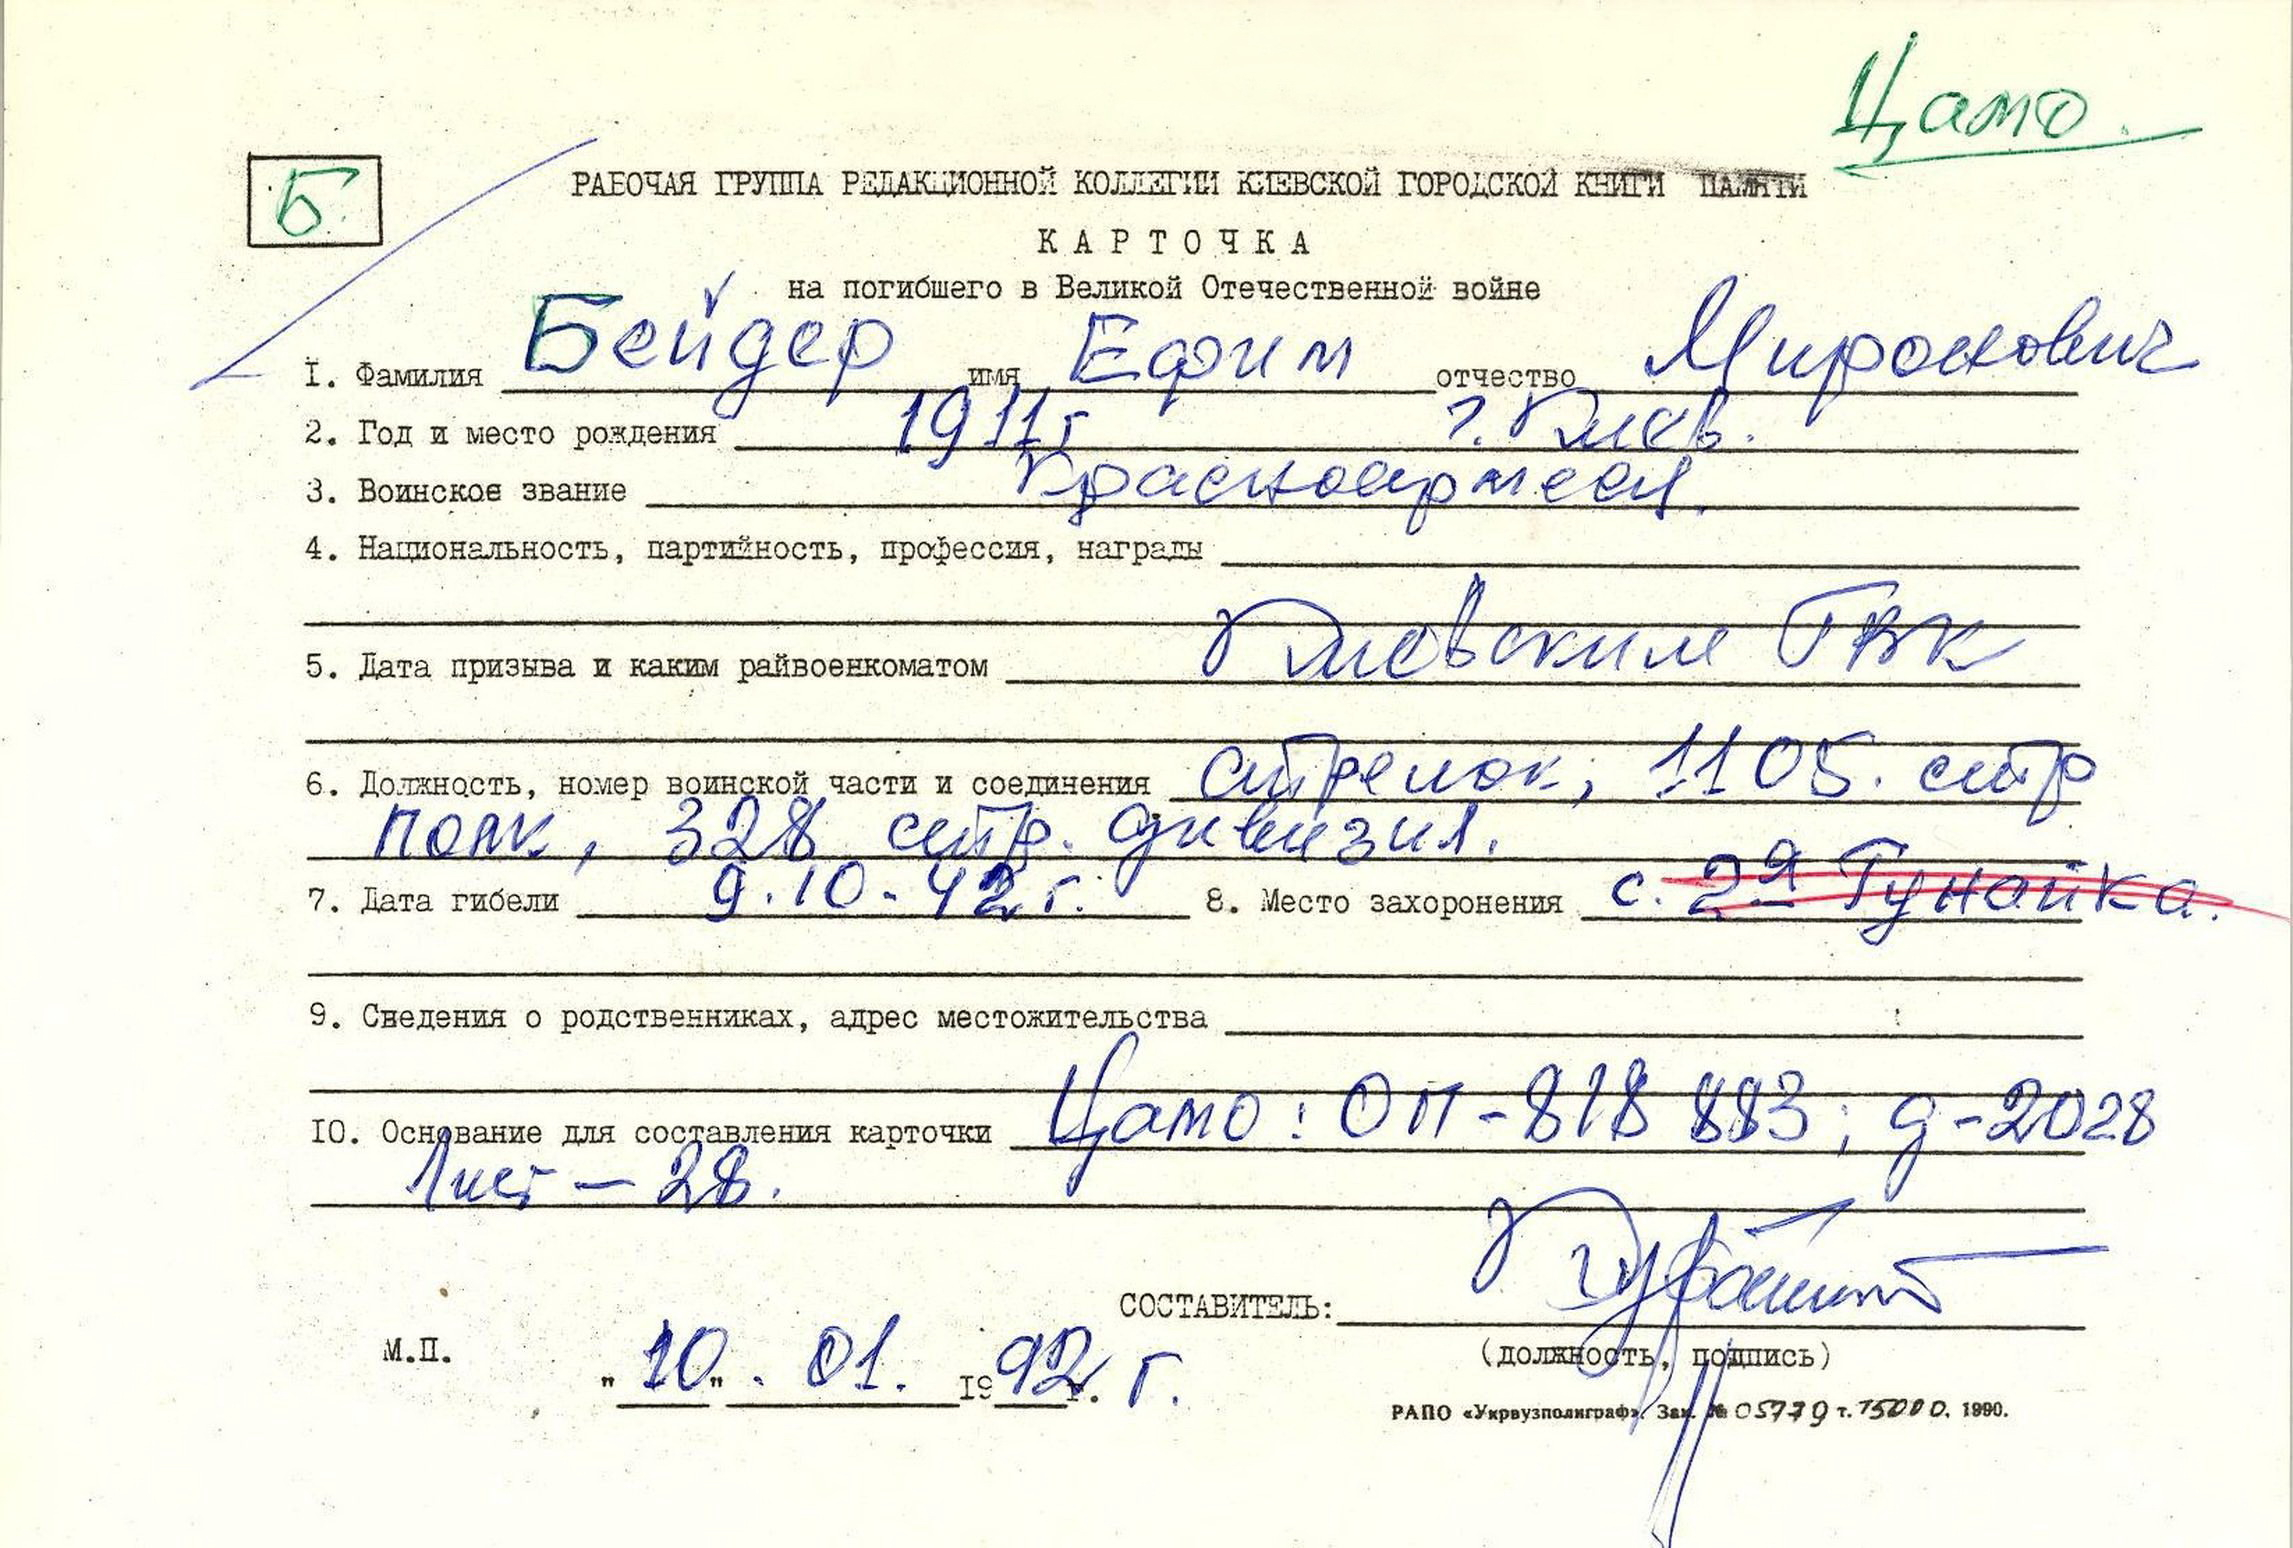 Цамо.
Б
РАБОЧАЯ ГРУППА РЕДАКЦИОННОЙ КОЛЛЕГИИ КИЕВСКОЙ ГОРОДСКОЙ КНИГИ ПАМЯТИ
КАРТОЧКА
на погибшего в Великой Отечественной войне
1. Фамилия Бейдер имя Ефим отчество Миронович
2. Год и место рождения 1911г г. Киев.
3. Воинское звание Красноармеец.
4. Национальность, партийность, профессия, награды
5. Дата призыва и каким райвоенкоматом Киевским ГВК
6. Должность, номер воинской части и соединения стрелок, 1105. стр
полк, 328 стр. дивизия.
7. Дата гибели 9.10.42г. 8. Место захоронения с. 2я Гунайка.
9. Сведения о родственниках, адрес местожительства
10. Основание для составления карточки Цамо: оп-818 883; д-2028
Лист-28.
СОСТАВИТЕЛЬ:
М.П. "10". 01. 1992г. г.
(должность, подпись)
РАПО «Укрвузполиграф». Зак. № 05779 т. 15000. 1990.